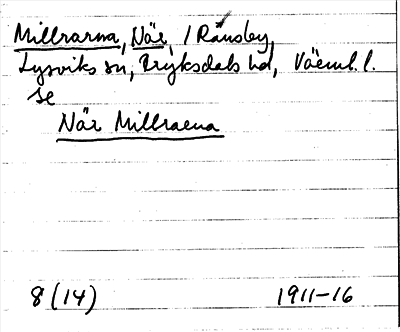 Millrarna, När, / Ränsby,
Lysviks sn, Fryksdals hd, Värml. l.
se
När Millrarna
8 (14) 1911-16